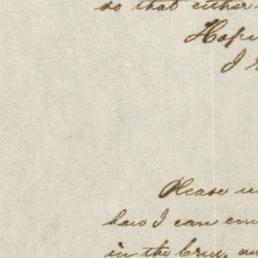 so that either
Hopi
I
Please
how I can
in the